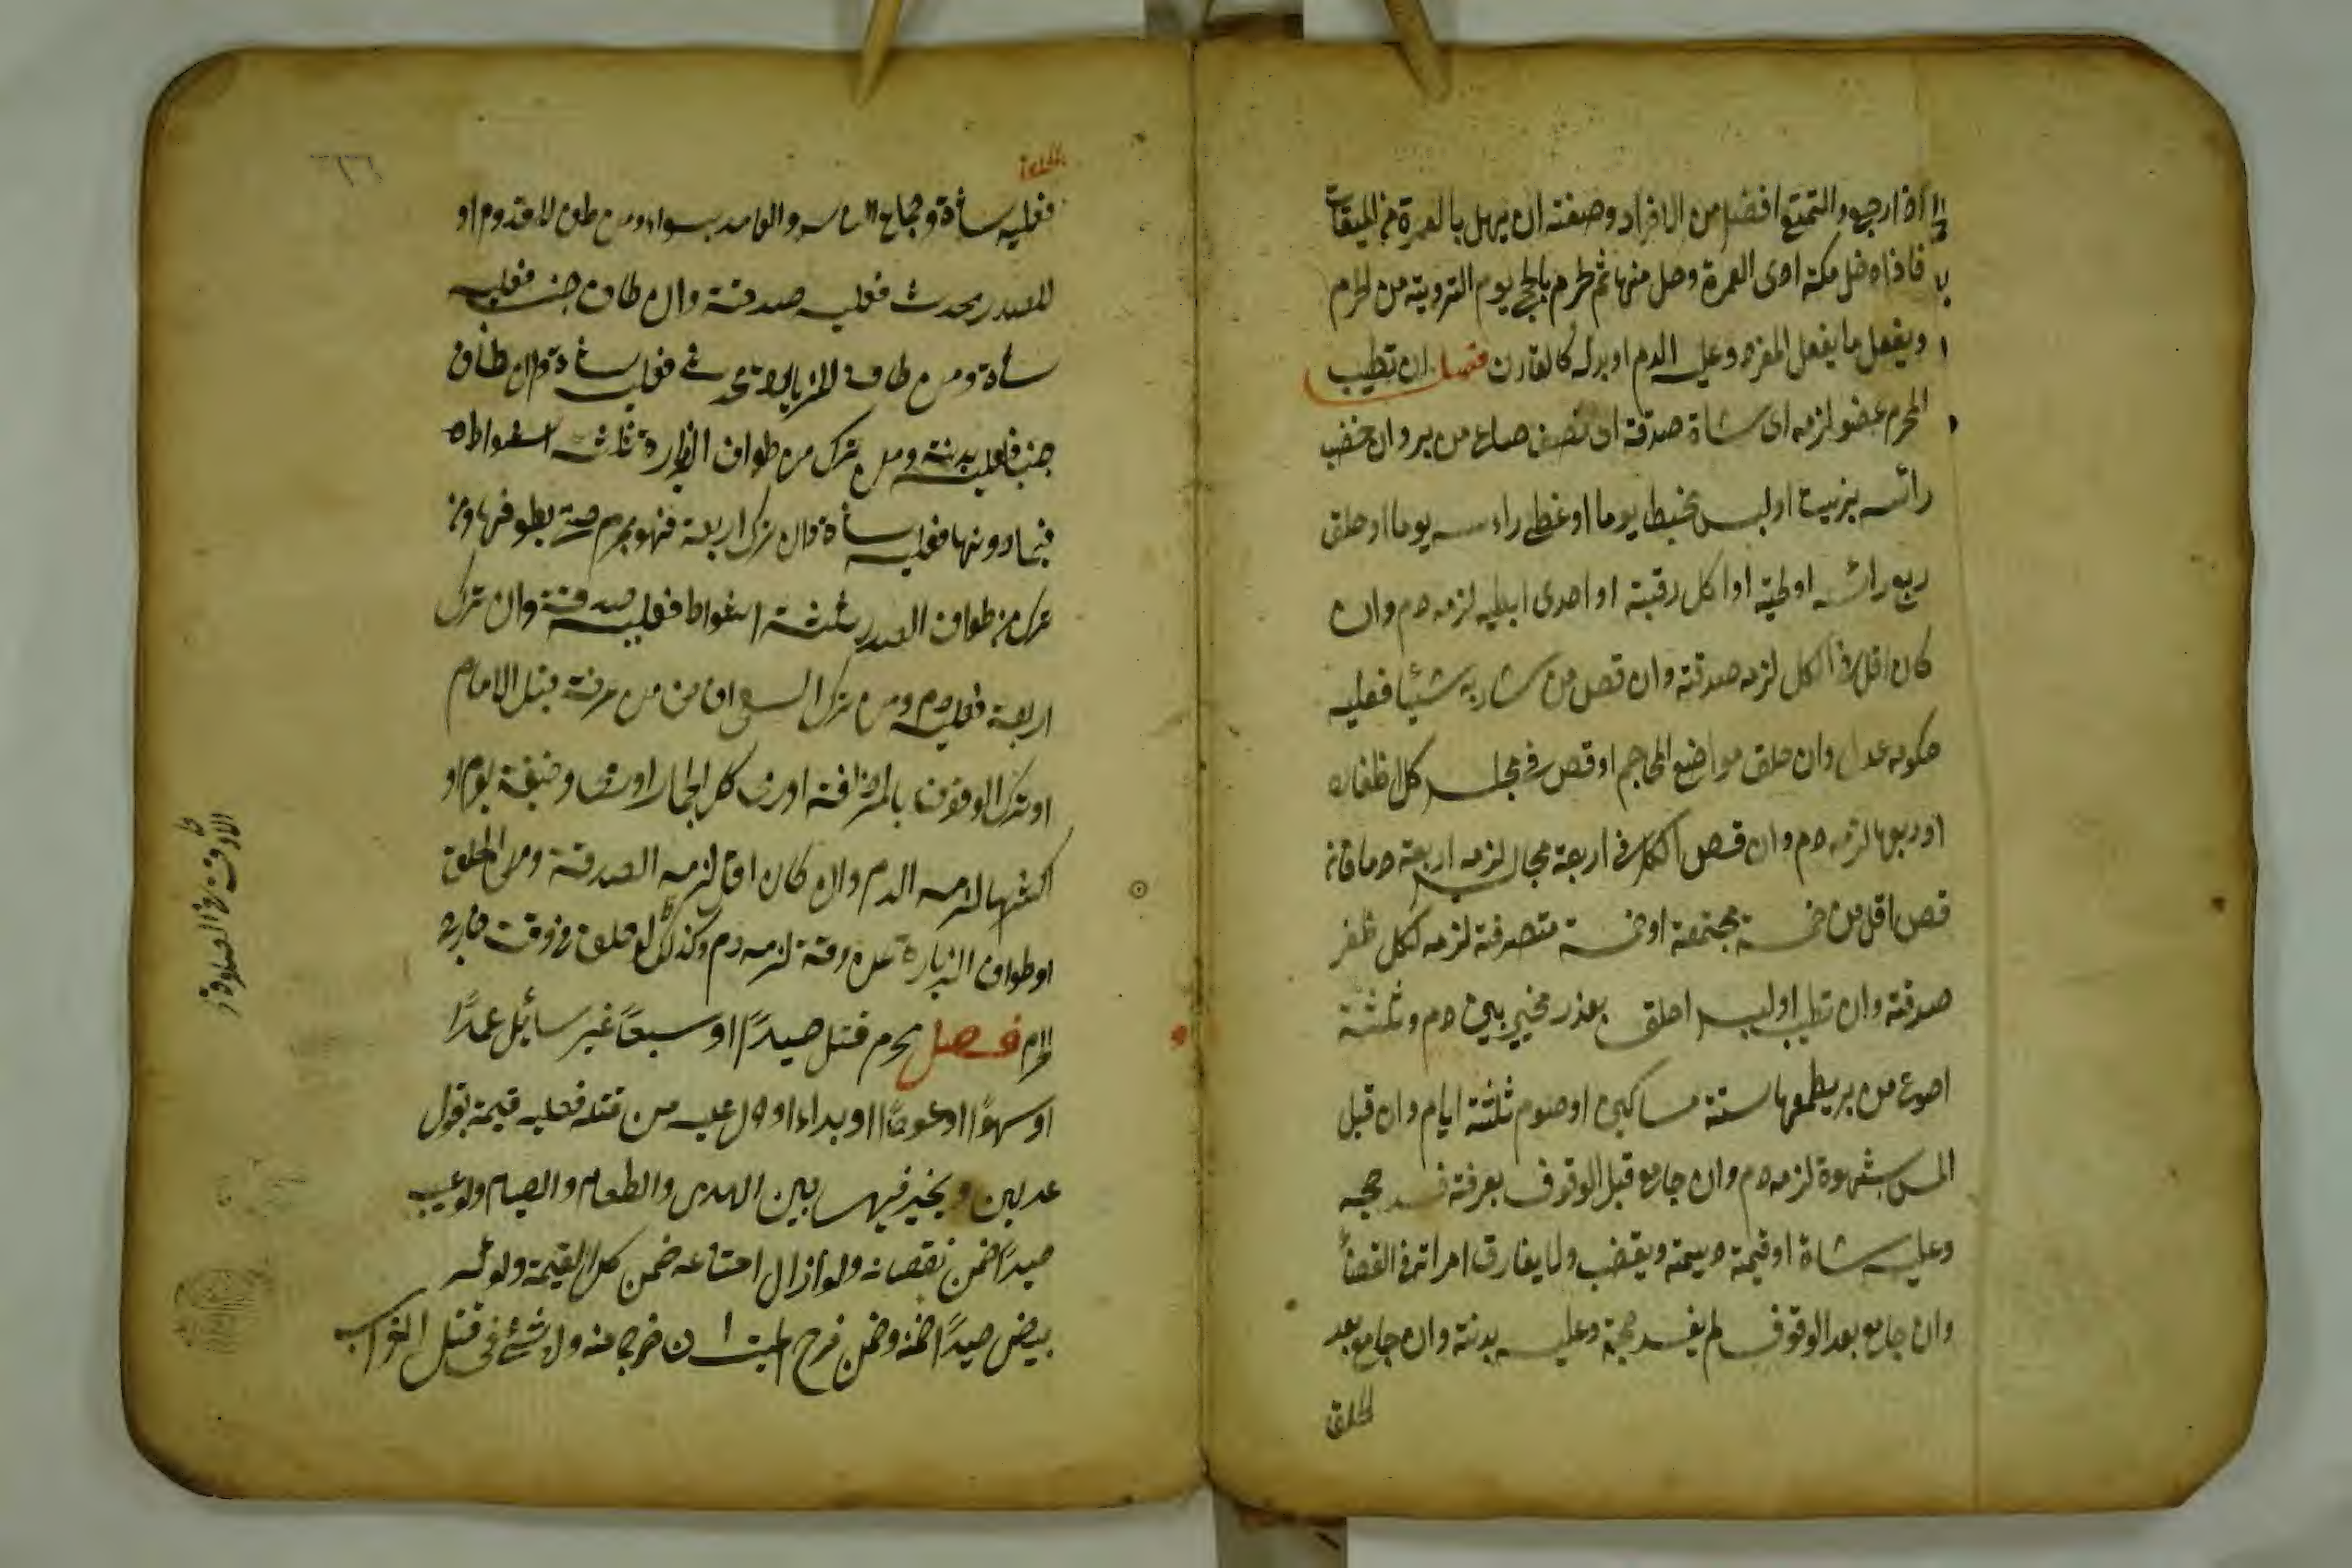 اذا رجع والتمتع افضل من الافراد وصفته ان يهل بالعمرة من الميقات
فاذا دخل مكة ادى العمرة وحل منها ثم يحرم بالحج يوم التروية من الحرم
ويفعل ما يفعل المفرد وعليه الدم او بدله كالقارن فصل ان تطيب
المحرم عضو لزمه اى شاة صدقة اى نصف صاع من بر وان خضب
رائسه بزيت او لبس مخيط يوما او غطى راءسه يوما او حلق
ربع رائسه او لحية او اكل رقبته او احدى ابطيه لزمه دم وان
كان اقل من الكل لزمه صدقة وان قص من شاربه شيئا فعليه
حكومة عدل وان حلق مواضع المحاجم او قص فى مجلس كل اظفاره
او ربعها لزمه دم وان قص الكل فى اربعة مجالس لزمه اربعة دما فان
قص اقل من خمسة مجتمعة او خمسة متصرفة لزمه لكل ظفر
صدقة وان تطيب او لبس احلق بعذر مخير بين دم وثلثة
اصوع من بر يطعمها ستة مساكين او صوم ثلثة ايام وان قبل
المس بشهوة لزمه دم وان جامع قبل الوقوف بعرفة فسد حجه
وعليه شاة او قيمة ويقضى ولا يفارق امراته فى القضاً
وان جامع بعد الوقوف لم يفسد حجة وعليه بدنة وان جامع بعد
الحلق
فعليه ساة وجماع الناسى والعامد سواء ومن طاف للقدوم او
للصدر محدث فعليه صدقة وان طاف جنب فعليه
ساة ومن طاف للزيارة محدث فعليه ساة وان طاف
جنب فعليه بدنة ومن ترك من طواف الزيارة ثلثة اشواط
فما دونها فعليه ساة وان ترك اربعة فهو محرم حتى يطوفها ومن
ترك من طواف الصدر ثلثة اشواط فعليه صدقة وان ترك
اربعة فعليه دم ومن ترك السعى افاض من عرفة قبل الامام
او ترك الوقوف بالمزدلفة او رمى كل الجمار او رمى وضيفة يوم او
اكثرها لزمه الدم وان كان اقل لزمه الصدقة ومن الحلق
او طواف الزيارة عن وقته لزمه دم وكذلك لو حلق فى وقت خارج
الحرم فصل محرم قتل صيدًا او سبعًا غير سائل عمدًا
او سهوًا او عودًا او بداء او دل عليه من قتله فعليه قيمة بقول
عدلين ويخير فيها بين الهدى والطعام والصيام ولو عيب
صيدًا ضمن نقصانه ولو ازال امتناعه ضمن كل القيمة ولو كسر
بيض صيدًا ضمنه وضمن فرخ الميت ان خرج منه ولا شئ فى قتل الغراب